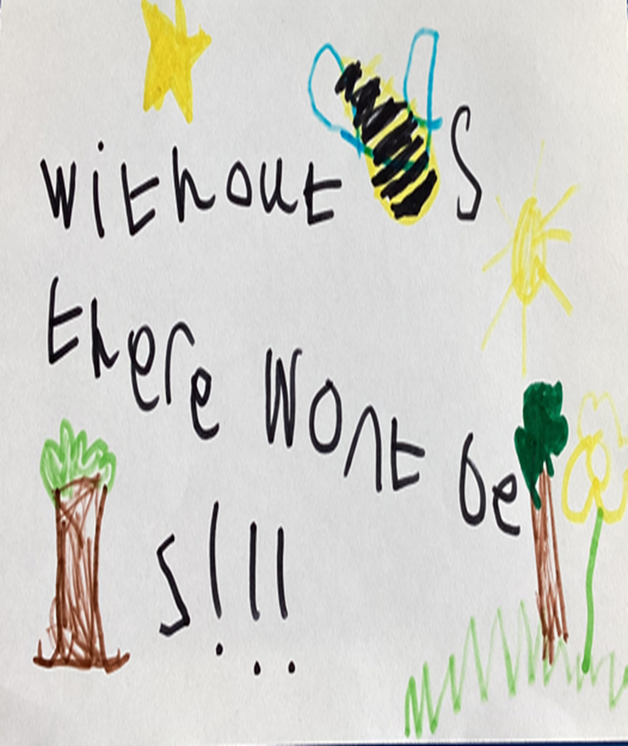 without s
there wont be
s!!!